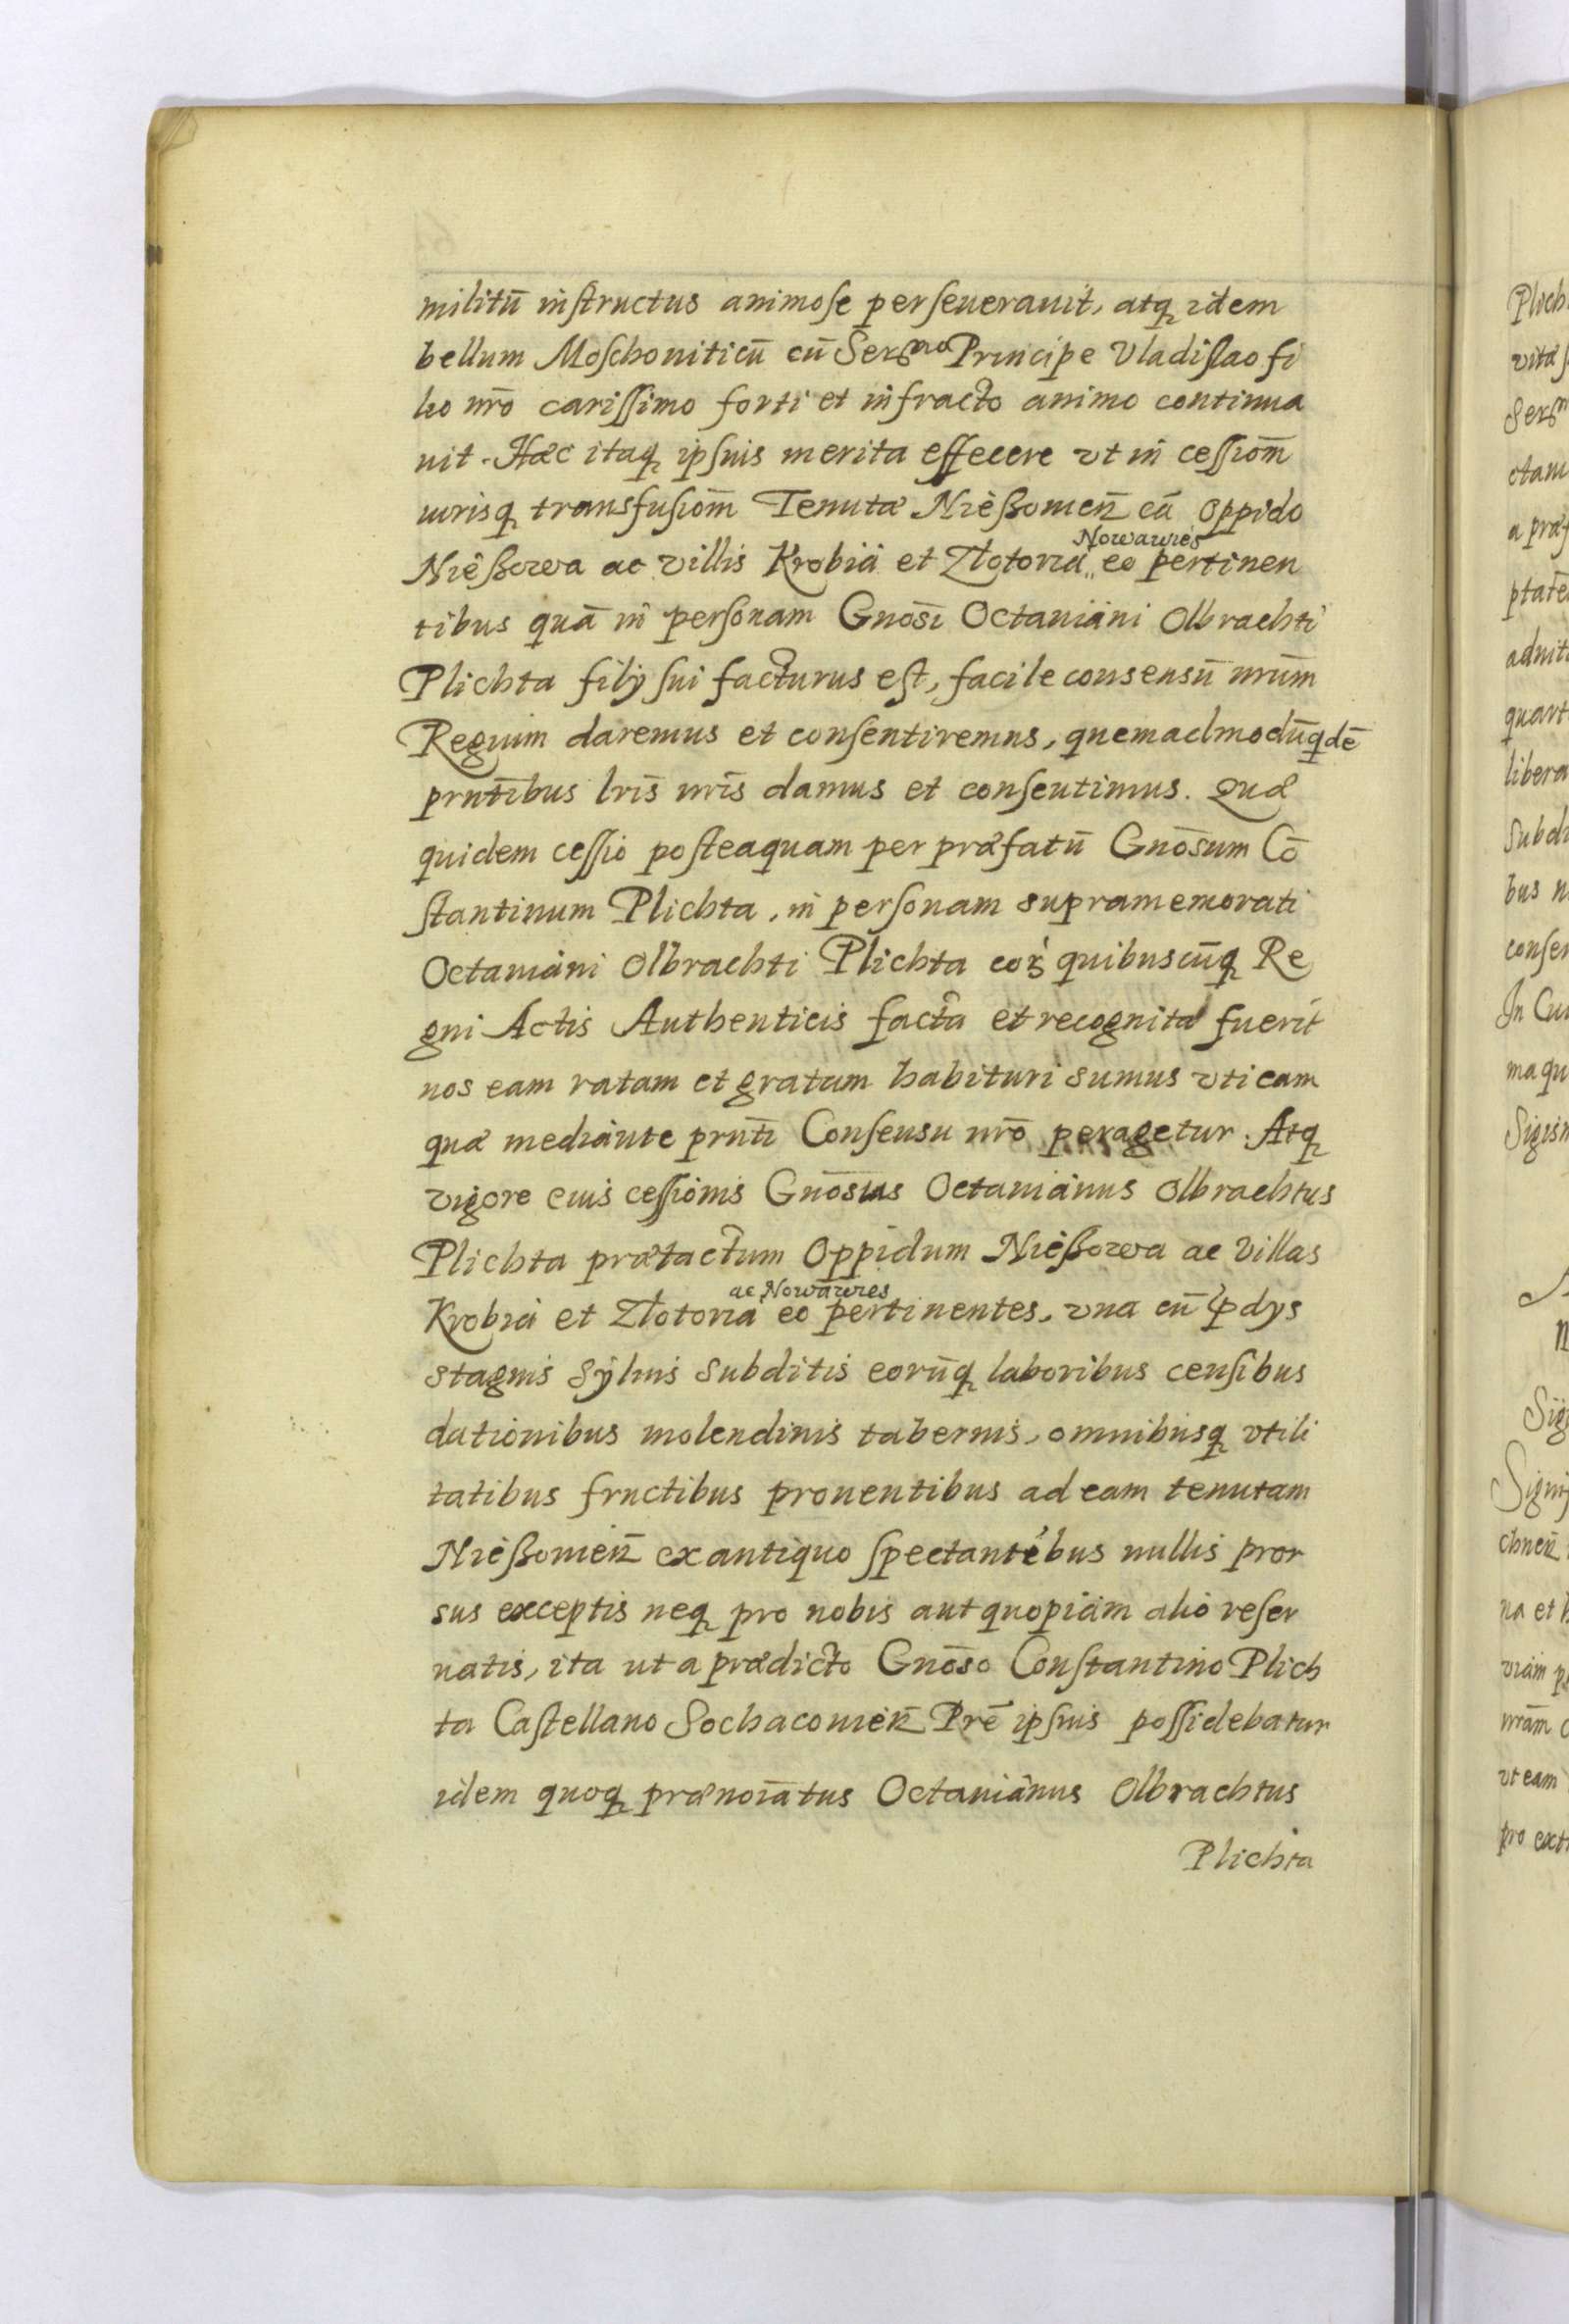 militū instructus animose perseuerauit, atq idem
bellum Moschouiticū cū Sermo Principe Vladislao fi
lio nrō carissimo forti et infracto animo continua
uit. Hæc itaq ipsius merita effecere vt in cessionē
iurisq transfusionē Tenutæ Nießouien cū oppido
Nowawies
Nießowa ac villis Krobia et Złotoria eo pertinen
tibus quā in personam Gnosi Octauiani Olbrachti
Plichta filij sui facturus est, facile consensū nrum
Regium daremus et consentiremus, quemadmodūqdē
prntibus lris nris damus et consentimus. Quæ
quidem cessio posteaquam per præfatū Gnosum Cō
stantinum Plichta, in personam supramemorati
Octauiani Olbrachti Plichta cor quibuscūq Re
gni Actis Authenticis facta et recognita fuerit
nos eam ratam et gratam habituri sumus vti eam
quæ mediante prnti Consensu nrō peragetur. Atq
vigore eius cessionis Gnosus Octauianus Olbrachtus
Plichta prætactum Oppidum Nießowa ac Villas
ac Nowawies
Krobia et Złotoria eo pertinentes, vna cū pdys
stagnis sÿluis subditis eorūq laboribus censibus
dationibus molendinis tabernis, omnibusq vtili
tatibus fructibus prouentibus ad eam tenutam
Nießouien ex antiquo spectantibus nullis pror
sus exceptis neq pro nobis aut quopiam alio reser
uatis, ita ut a prædicto Gnoso Constantino Plich
ta Castellano Sochacouien Prē ipsius possidebatur
idem quoq prænoiatus Octauianus Olbrachtus
Plichta